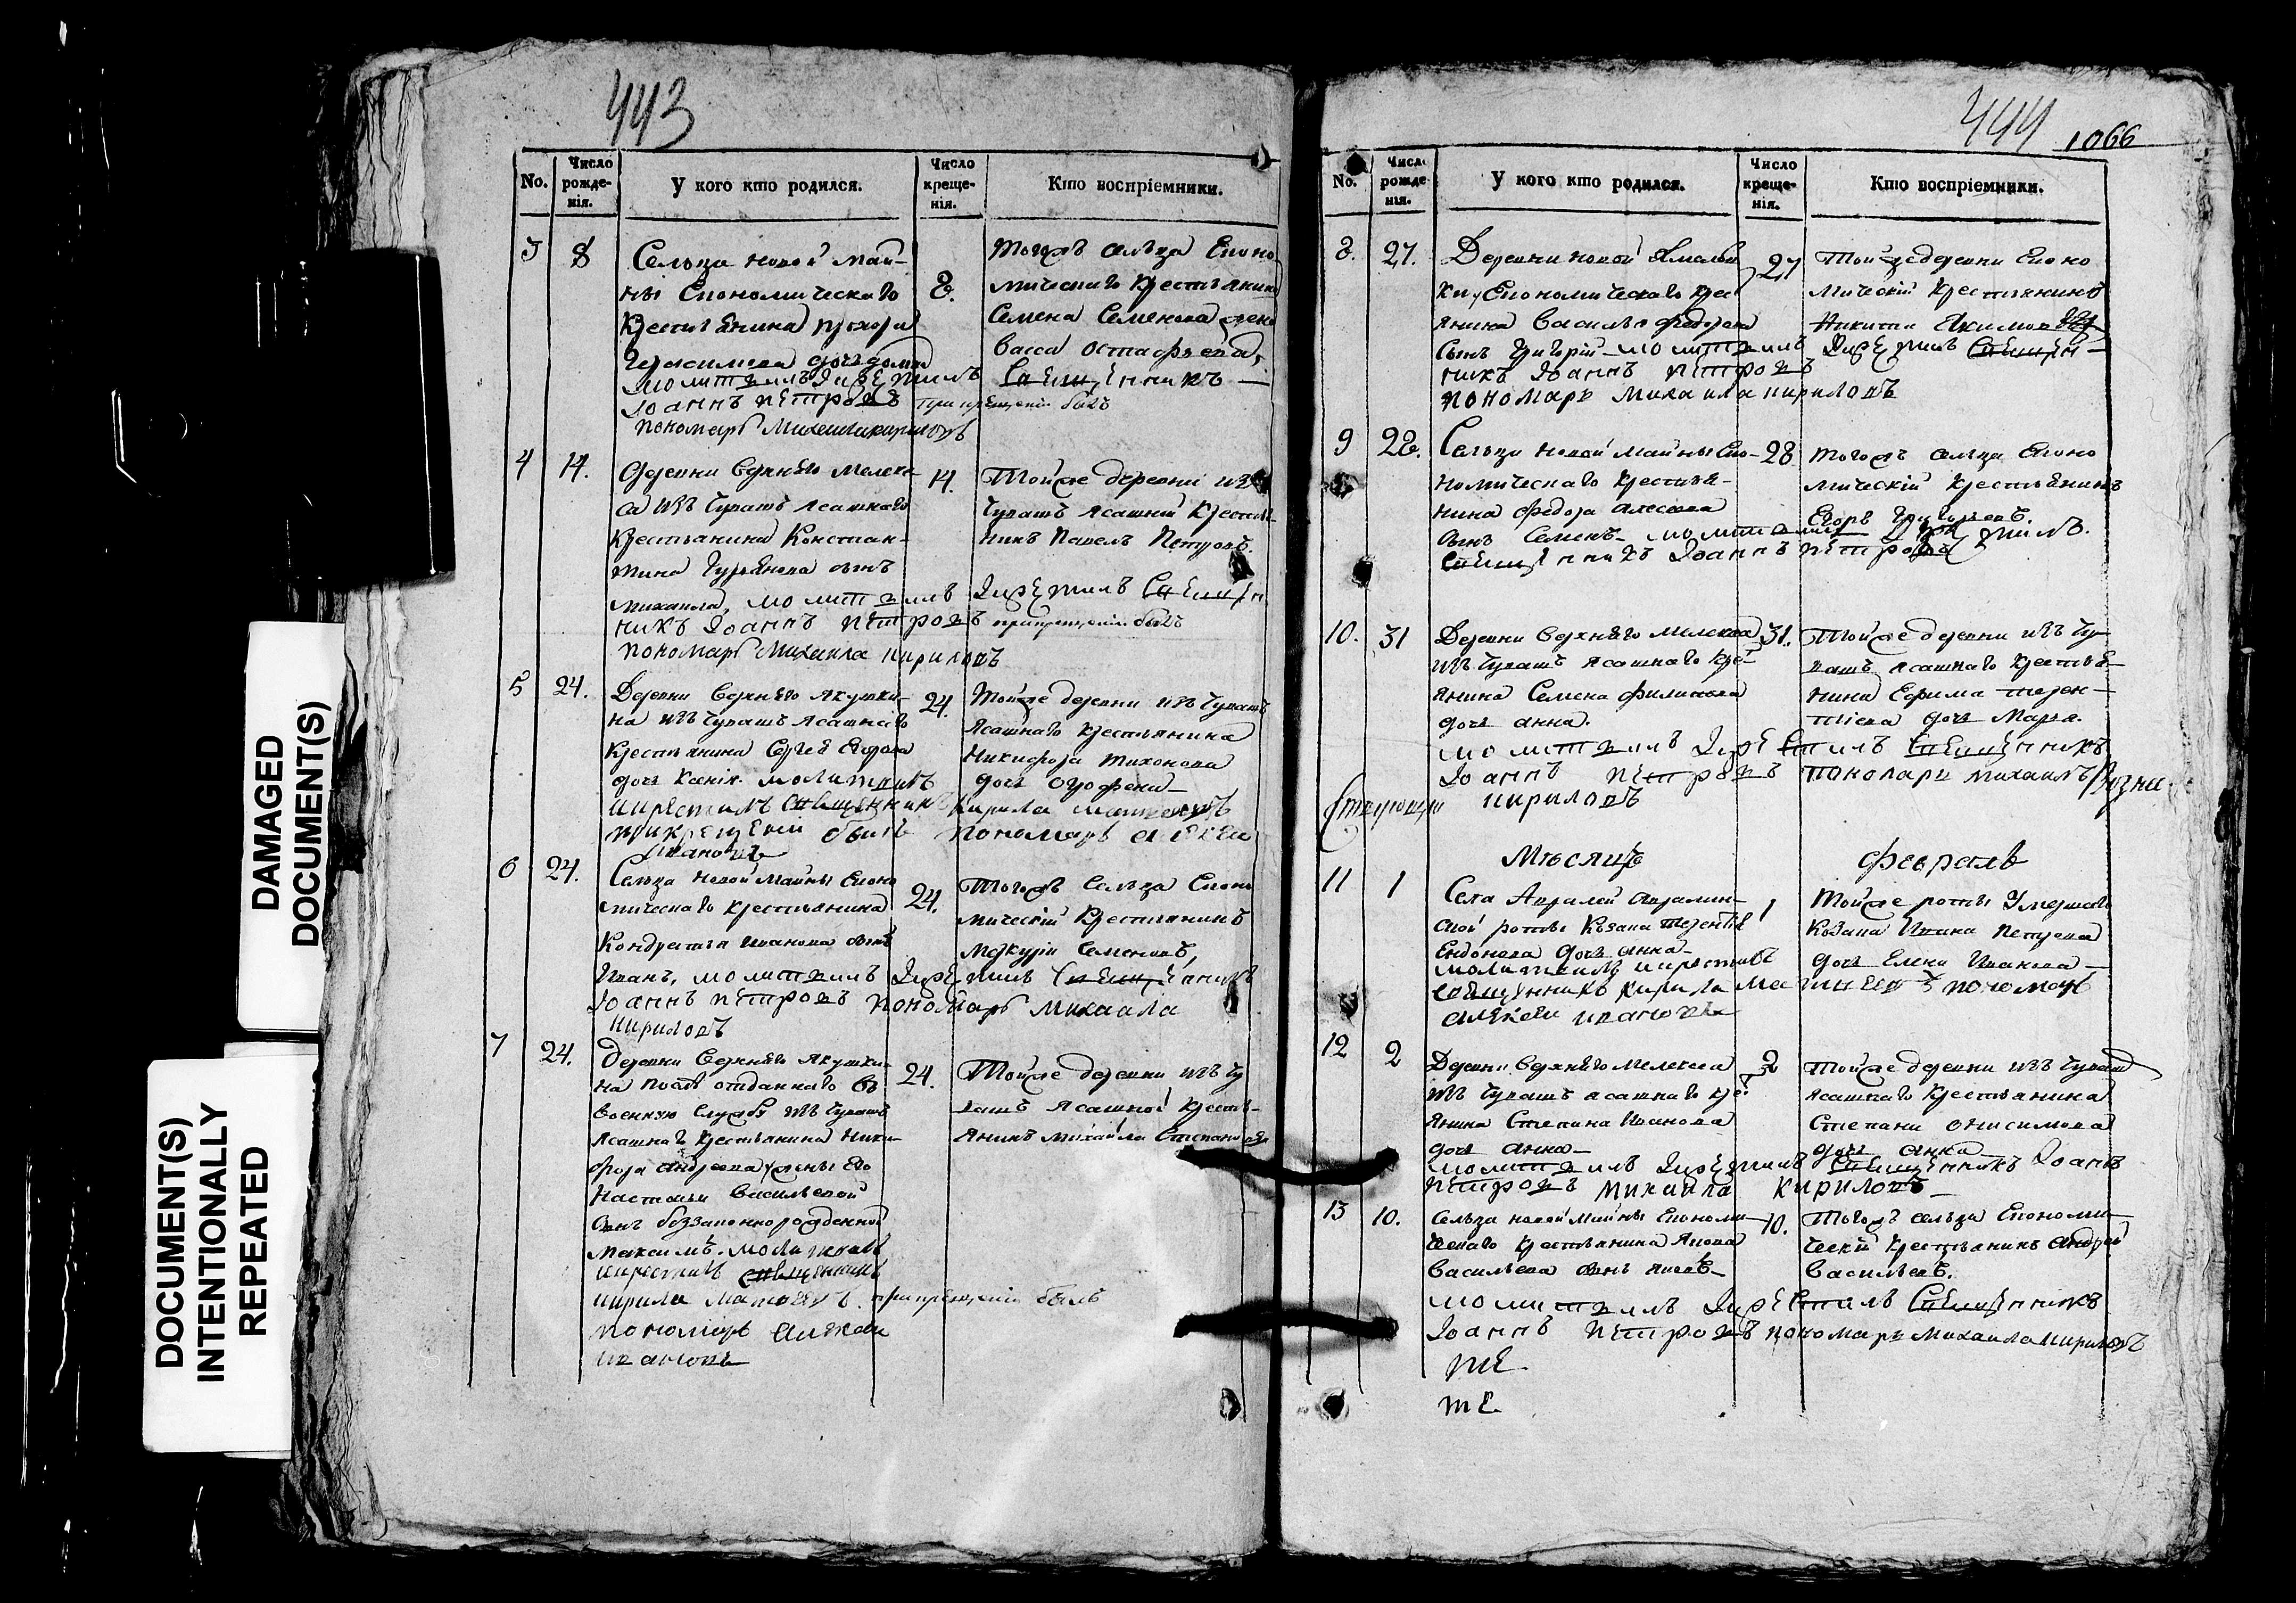 443
No.
Число рожденія.
У кого кто родился.
Число крещенія.
Кто воспріемники.
3
8
Сельца новой май-
ны Економическаго
Крестьянина прохора
Герасимова дочь домна
молитвилъ Икрѣстилъ
Іоаннъ пѣтровъ при крещеніи былъ
пономарь Михаила кириловъ
8.
тогожъ сельца Економическаго Крестьянина
Семена Семенова жена
васса остафьева,
Священникъ
4
14.
Деревни верхняго Мелеке-
са изъ Чувашъ ясашнаго
Крестьянина Констан-
тина Гурьянова сынъ
михаила, молитвилъ Икрѣстилъ Священ
никъ Іоаннъ пѣтровъ прикрещеніи былъ
пономарь Михаила кириловъ
14.
Тойже деревни изъ
Чувашъ ясашной Крестья-
нинъ Павелъ Петровъ.
5
24.
Деревни верхняго якушки-
на изъ Чувашъ ясашнаго
Крестьянина Сергея Егорова
дочь Ксенія. молитвилъ
икрестилъ священникъ Кирила матвеевъ
прикрещеніи былъ пономарь алексеи
ивановъ
24.
Тойже деревни изъ Чувашъ
ясашнаго крестьянина
Никифора тихонова
дочь
6
24.
Сельца новой майны Економическаго крестьянина
Кондратья иванова сынъ
Иванъ, молитвилъ Икрѣстилъ Священникъ
Іоаннъ пѣтровъ пономарь михаила
кириловъ
24.
Тогожъ Сельца Економическій Крестьянинъ
меркурій Семеновъ,
7
24.
Деревни верхняго якушки-
на послѣ отданнаго въ
военную службу изъ Чувашъ
ясашнаго крестьянина Ники-
фора андреева жены Его
Настасьи васильевой
сынъ беззаконнорожденной
максимъ. молитвилъ
икрестилъ священникъ
кирила матвеевъ. прикрещеніи былъ
пономарь алексеи
ивановъ
24.
Тойже деревни изъ Чу
вашъ ясашной крестья-
янинъ михайла Степановъ
444
1066
No.
Число рожденія.
У кого кто родился.
Число крещенія.
Кто воспріемники.
8.
27.
Деревни новой
Економическаго крес
янина василья федорова
сынъ Григорій молитвилъ Икрѣстилъ Священ-
никъ Іоаннъ пѣтровъ
пономарь михаила кириловъ
27
Тойжедеревни Еконо
мическій крестьянинъ
Никита Якимов
9
28.
Сельца новой майны Еко-
номическаго крестья-
нина федора алексеева
сынъ Семенъ молитвилъ Икрѣстилъ.
Священникъ Іоаннъ пѣтровъ
28
тогожъ сельца Еконо
мическій крестьянинъ
Егоръ Григорьевъ.
10.
31
Деревни верхняго мелекеса
изъ Чувашъ ясашнаго кре-
янина Семена филипова
дочь анна.
молитвилъ Икрѣстилъ Священникъ
Іоаннъ пѣтровъ пономарь михаилъ
кириловъ
31.
Тойже деревни изъ Чу-
вашъ ясашнаго крестья-
нина Ефима терен-
тіева дочь Марья.
Мѣсяцъ февраль
11
1
Села
ской роты Казака терентія
дочь анна
молитвилъ икрестилъ
священникъ кирила матвеевъ пономарь
алексеи ивановъ
1
Тойже роты Умершаго
Козака Петрова
дочь Елена Иванова
12
2
Деревни верхняго мелекеса
изъ Чувашъ ясашнаго кре
янина Степана Иванова
дочь анна
молитвилъ Икрѣстилъ Священникъ Іоаннъ
пѣтровъ михаила кириловъ
2
Тойже деревни изъ Чуваш
ясашнаго крестьянина
Степана онисимова
дочь анна
13
10.
Сельца новой майны Економи-
ческаго крестьянина Якова
васильева сынъ яковъ
молитвилъ Икрѣстилъ Священникъ
Іоаннъ пѣтровъ пономарь михаила кириловъ
тѣ
тѣ
10.
Тогожъ сельца Економи-
ческій крестьянинъ андрей
васильевъ.
DAMAGED
DOCUMENT(S)
DOCUMENT(S)
INTENTIONALLY
REPEATED